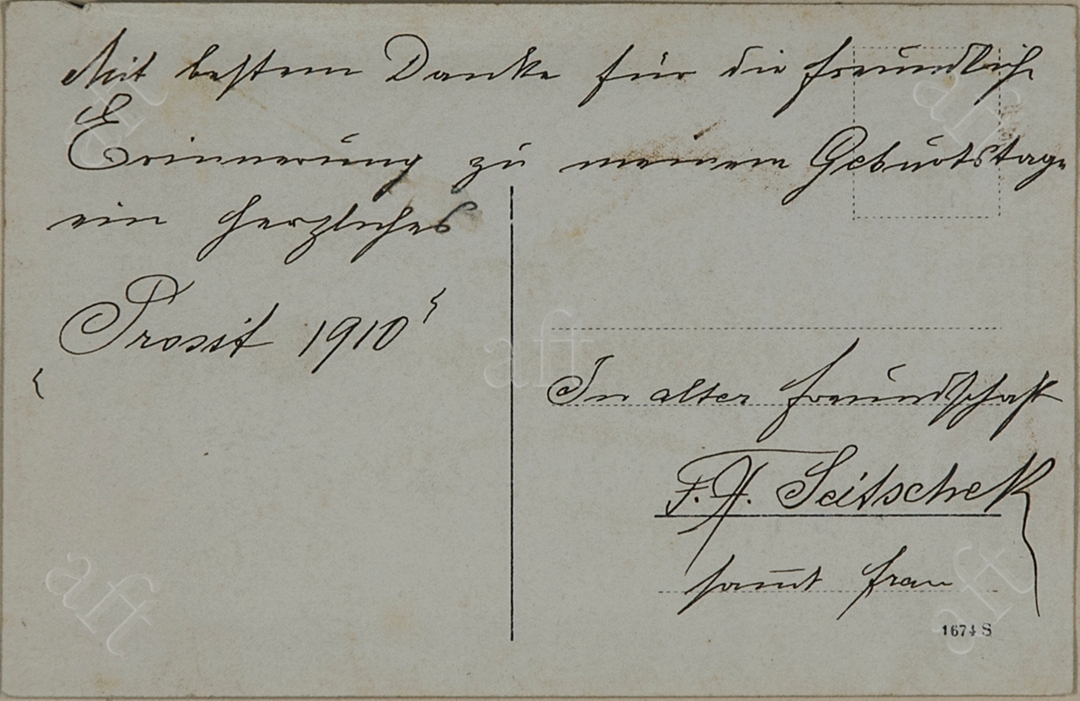 Mit bestem Danke für die freundliche
Erinnerung zu meinem Geburtstage
ein herzliches
„Prosit 1910“
In alter Freundschaft
F. A. Seitschek
sammt Frau
1674 S
aft
aft
aft
aft
aft